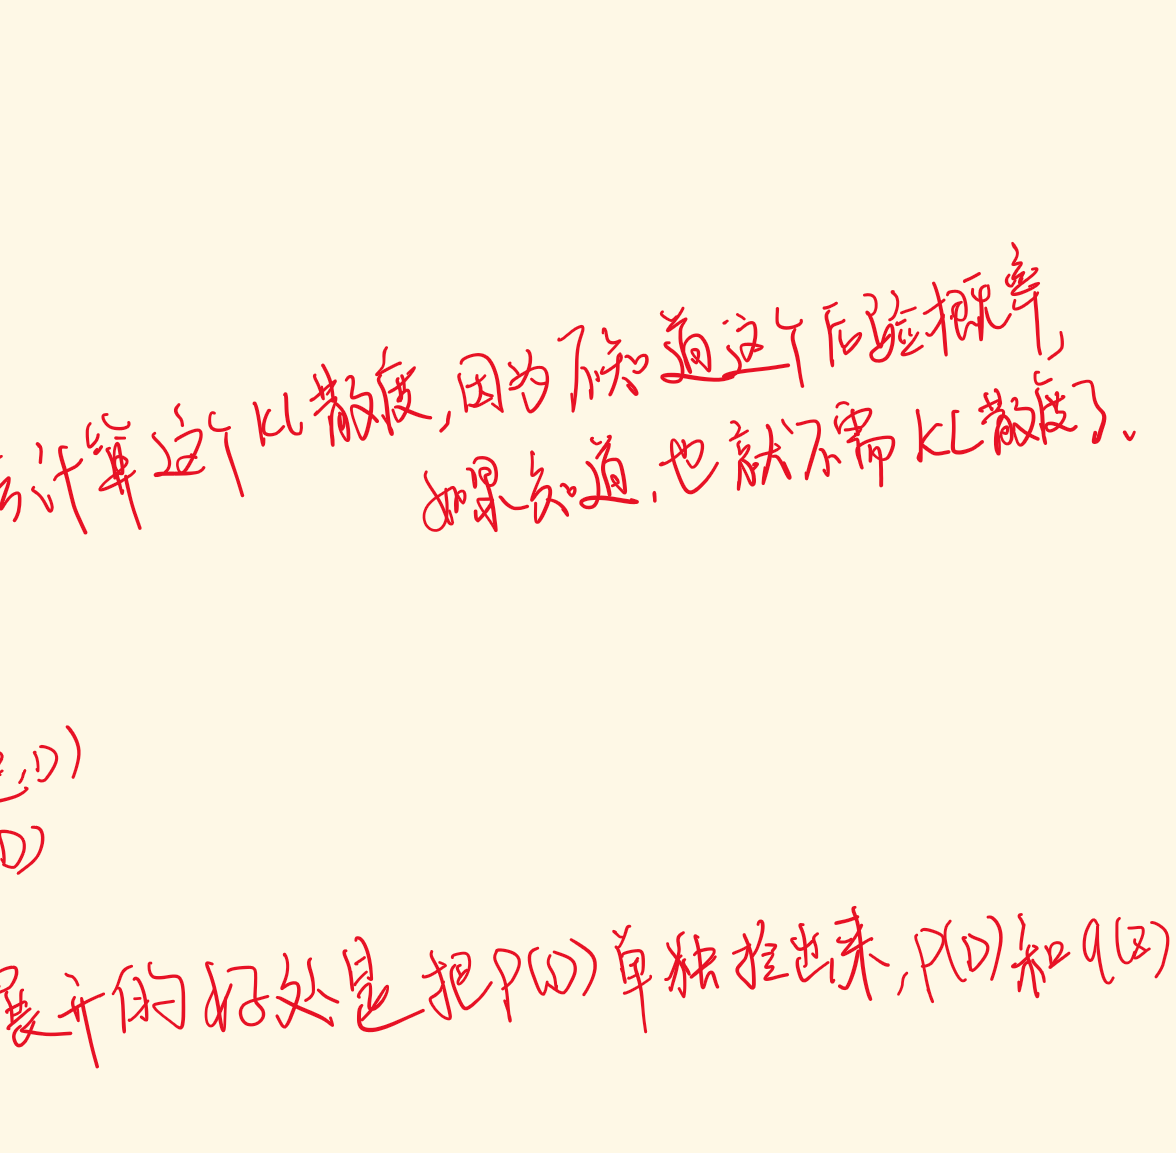 计算这个KL散度,因为不知道这个后验概率,
如果知道,也就不需KL散度了、
,D)
D)
展开的好处是把P(D)单独拴出来,P(D)和q(z)